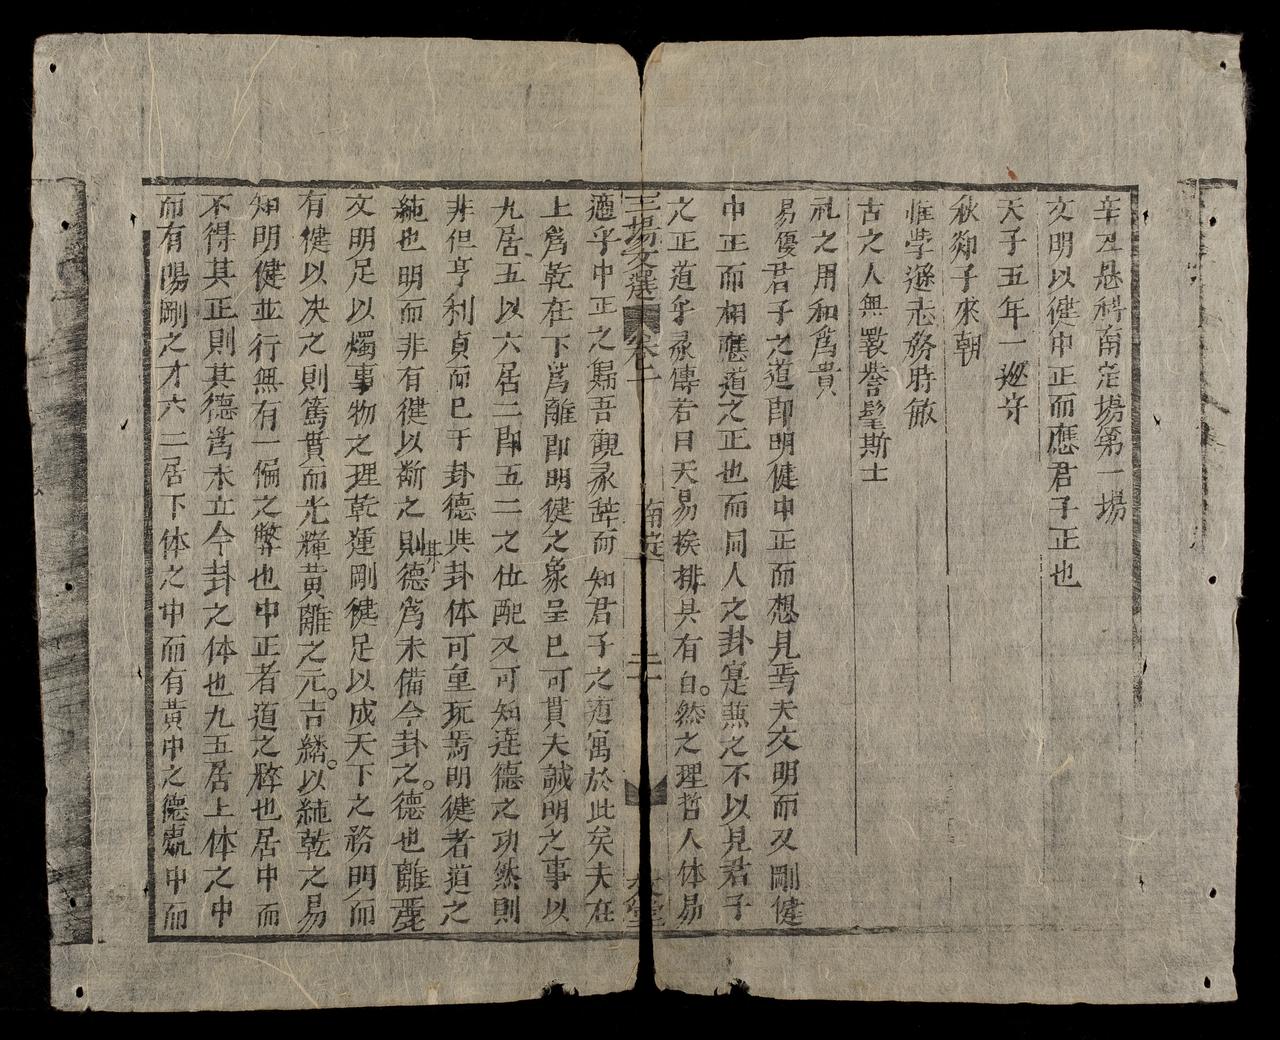 辛丑恩科南定場第一場
文明以健中正而應君子正也
天子五年一廵守
秋匑子來朝
惟學遜志務時敏
古之人無斁譽髦斯士
礼之用和為貴
易優君子之道即明健中正而想見焉夫文明而又剛健
中正而相應道之正也而同人之卦寔燕之不以見君子
之正道乎彖傳若曰天易挨排具有自然之理哲人体易
三場文選 卷二 南定 二十 堂
適乎中正之歸吾觀彖辞而知君子之道寓於此矣夫在
上為乾在下為離即明健之象呈已可貫夫誠明之事以
九居五以六居二即五二之位配又可知達德之功然則
非但亨利貞而已于卦德與卦体可重玩焉明健者道之
純也明而非有健以断之則其德為未備今卦之德也離麗
文明足以燭事物之理乾運剛健足以成天下之務明而
有健以决之則篤貫而光糧黄離之元吉繗以純乾之易
知明健並行無有一偏之弊也中正者道之粹也居中而
不得其正則其德為未立今卦之体也九五居上体之中
而有陽剛之才六二居下体之中而有黄中之德䖏中而